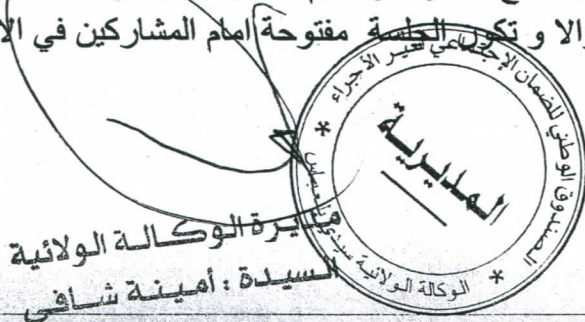 الا و تكون الجلسة مفتوحة امام المشاركين في الا
الصندوق الوطني للضمان الإجتماعي لغير الأجراء
المديرية
الوكالة الولائية سيدي بلعباس
مديرة الوكالة الولائية
السيدة : أمينة شافي